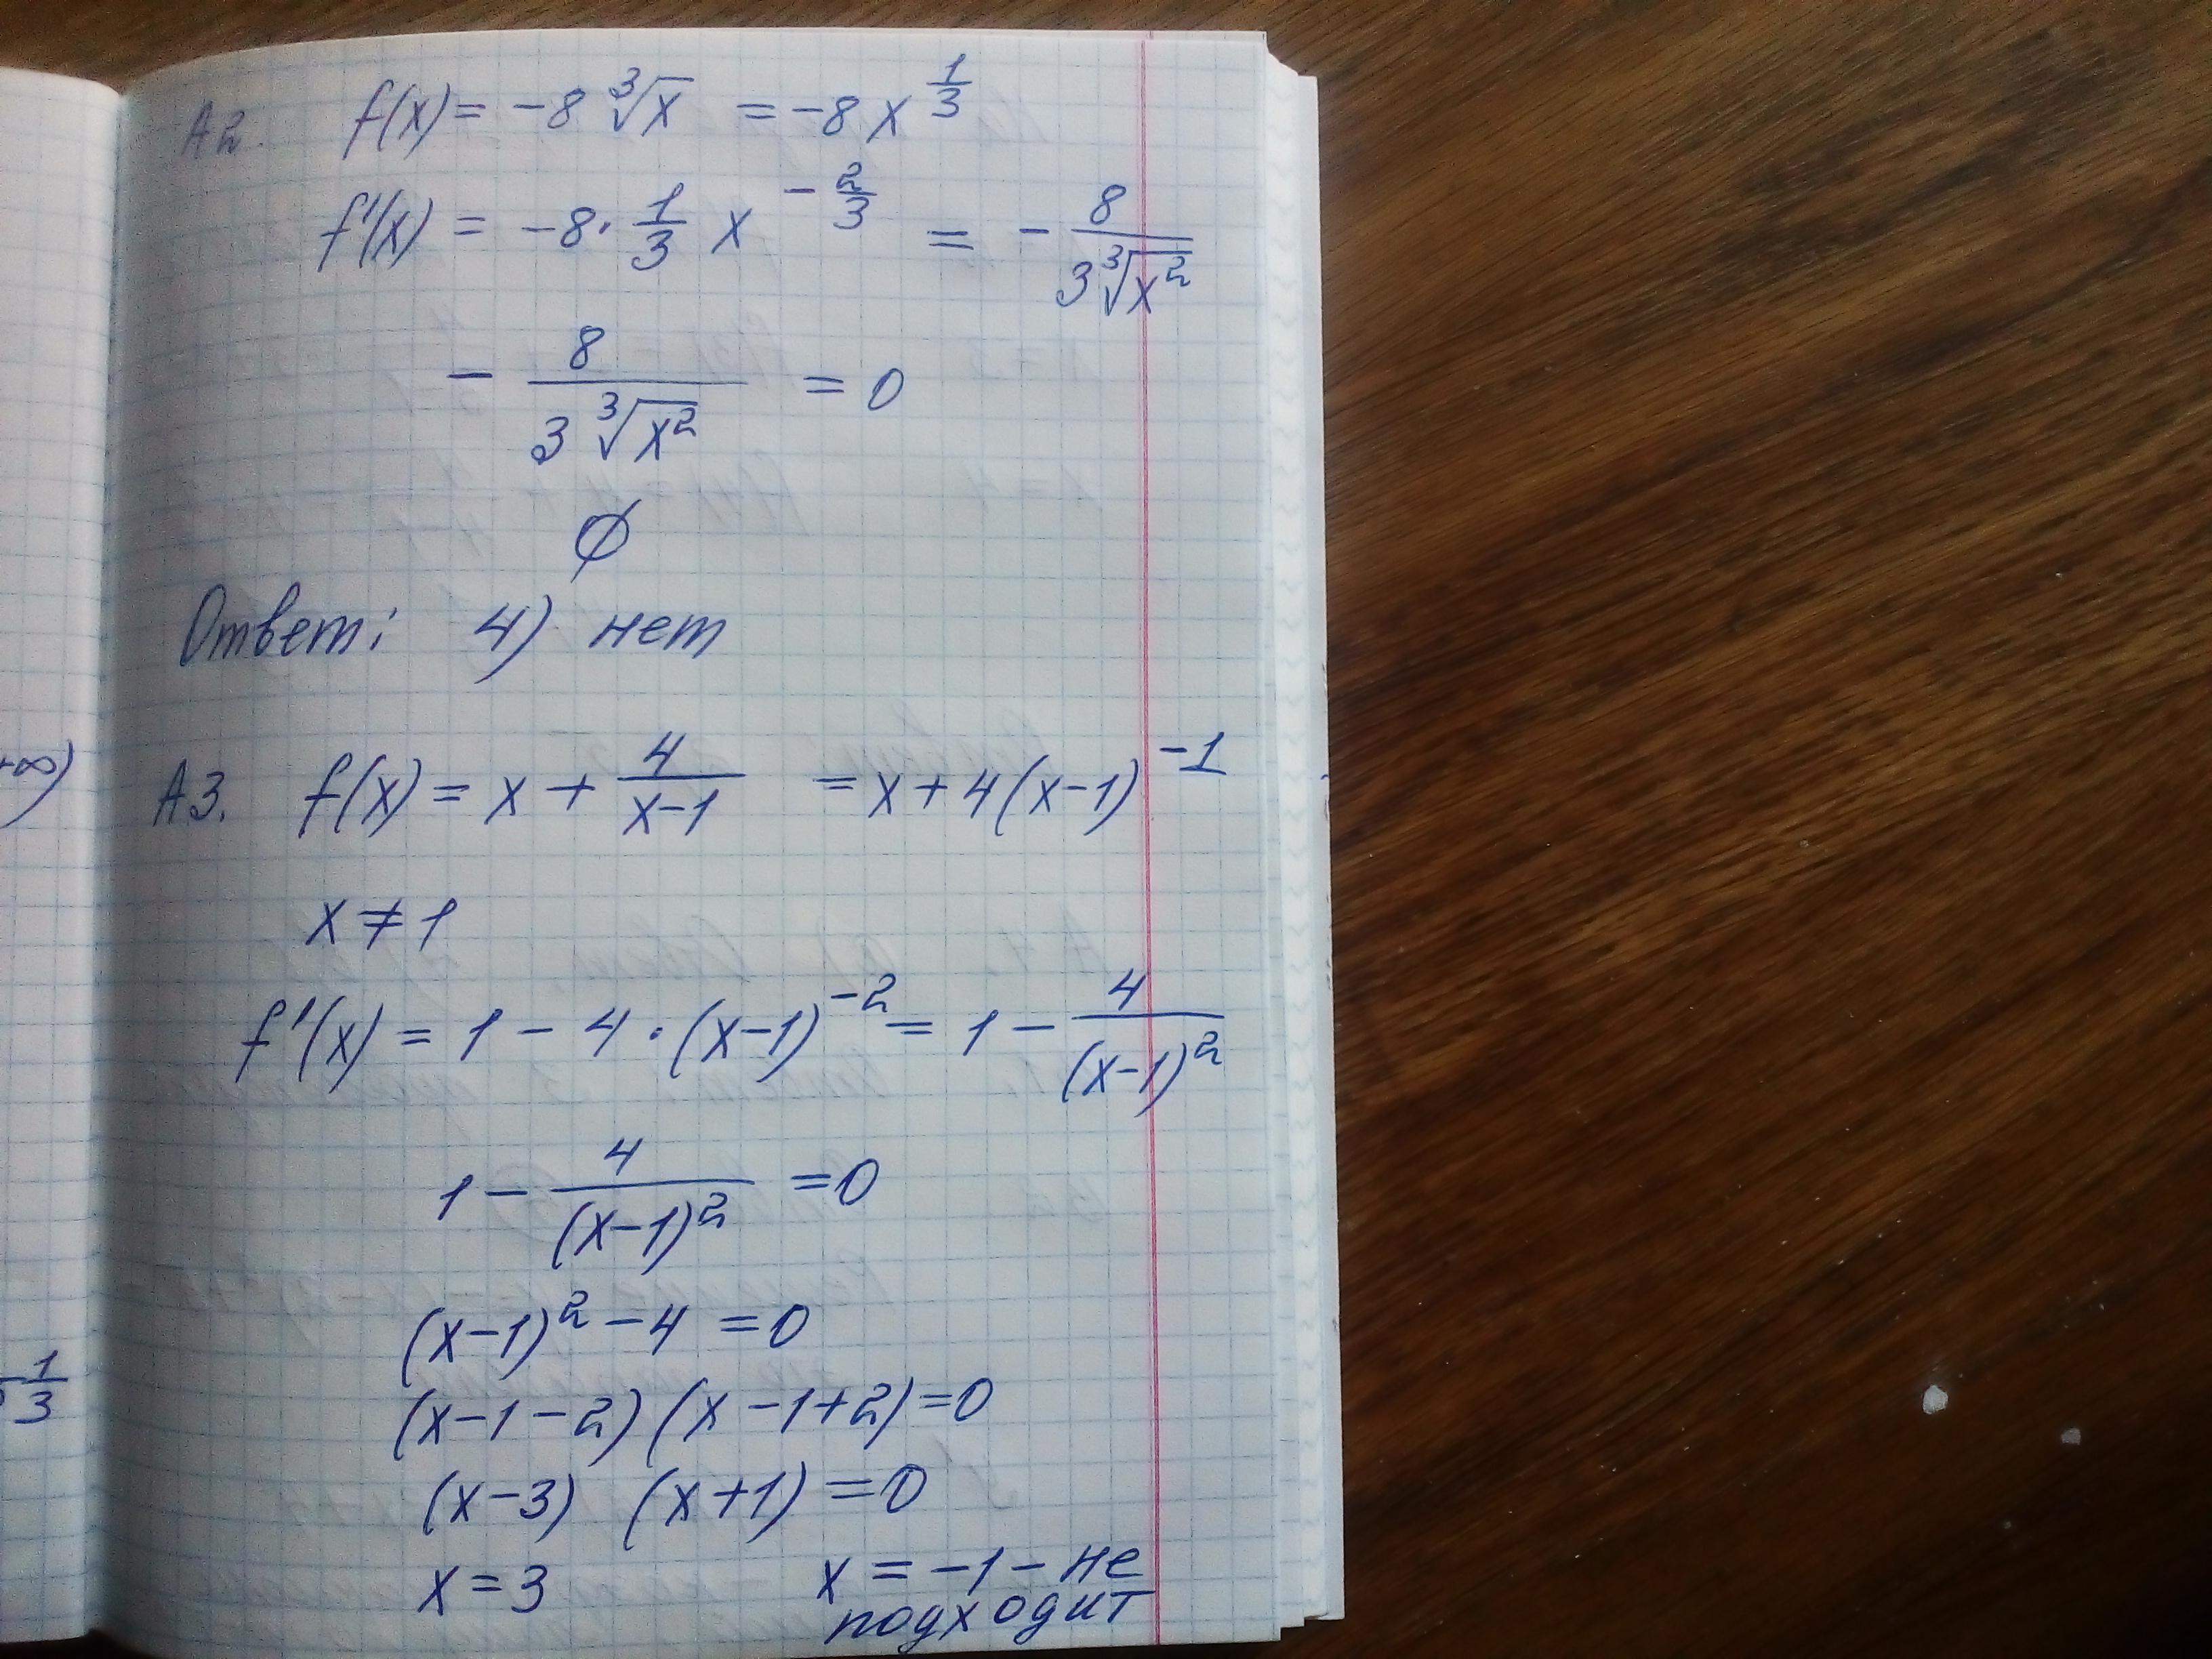 А2. f(x) = -8 ∛x = -8 x^(1/3)
f'(x) = -8 · 1/3 x^(-2/3) = - 8/(3∛x²)
- 8/(3∛x²) = 0
∅
Ответ: 4) нет
А3. f(x) = x + 4/(x-1) = x + 4(x-1)^(-1)
x ≠ 1
f'(x) = 1 - 4 · (x-1)^(-2) = 1 - 4/(x-1)²
1 - 4/(x-1)² = 0
(x-1)² - 4 = 0
(x-1-2)(x-1+2) = 0
(x-3) (x+1) = 0
x = 3 x = -1 - не
подходит
+∞)
1/3